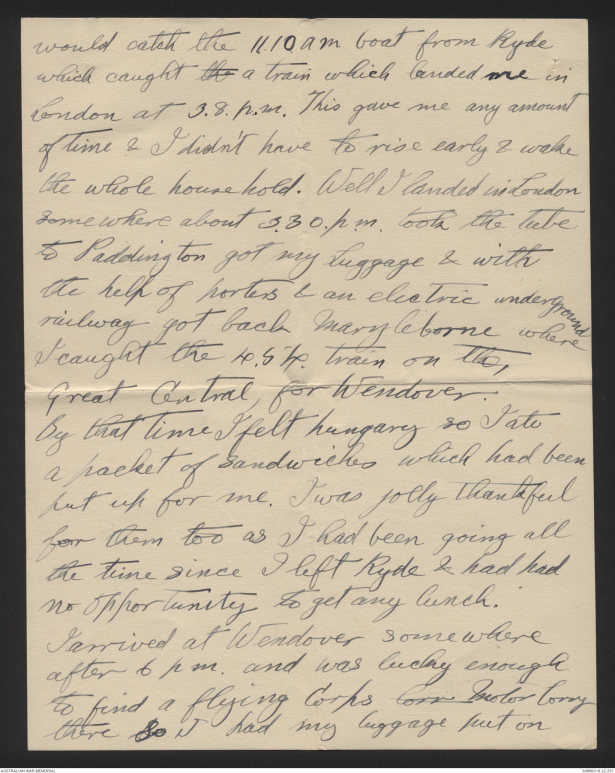 would catch the 11.10 am boat from Ryde
which caught the a train which landed me in
London at 3.8. p.m. This gave me any amount
of time & I didn't have to rise early & wake
the whole household. Well I landed in London
somewhere about 3.30. p.m. took the tube
to Paddington got my luggage & with
the help of porters & an electric underground
railway got back Maryleborne where
I caught the 4.54. train on the,
Great Central, for Wendover.
By that time I felt hungary so I ate
a packet of sandwiches which had been
put up for me. I was jolly thankful
for them too as I had been going all
the time since I left Ryde & had had
no opportunity to get any lunch.
I arrived at Wendover somewhere
after 6 p m. and was lucky enough
to find a flying Corps Motor lorry
there So I had my luggage put on
AUSTRALIAN WAR MEMORIAL